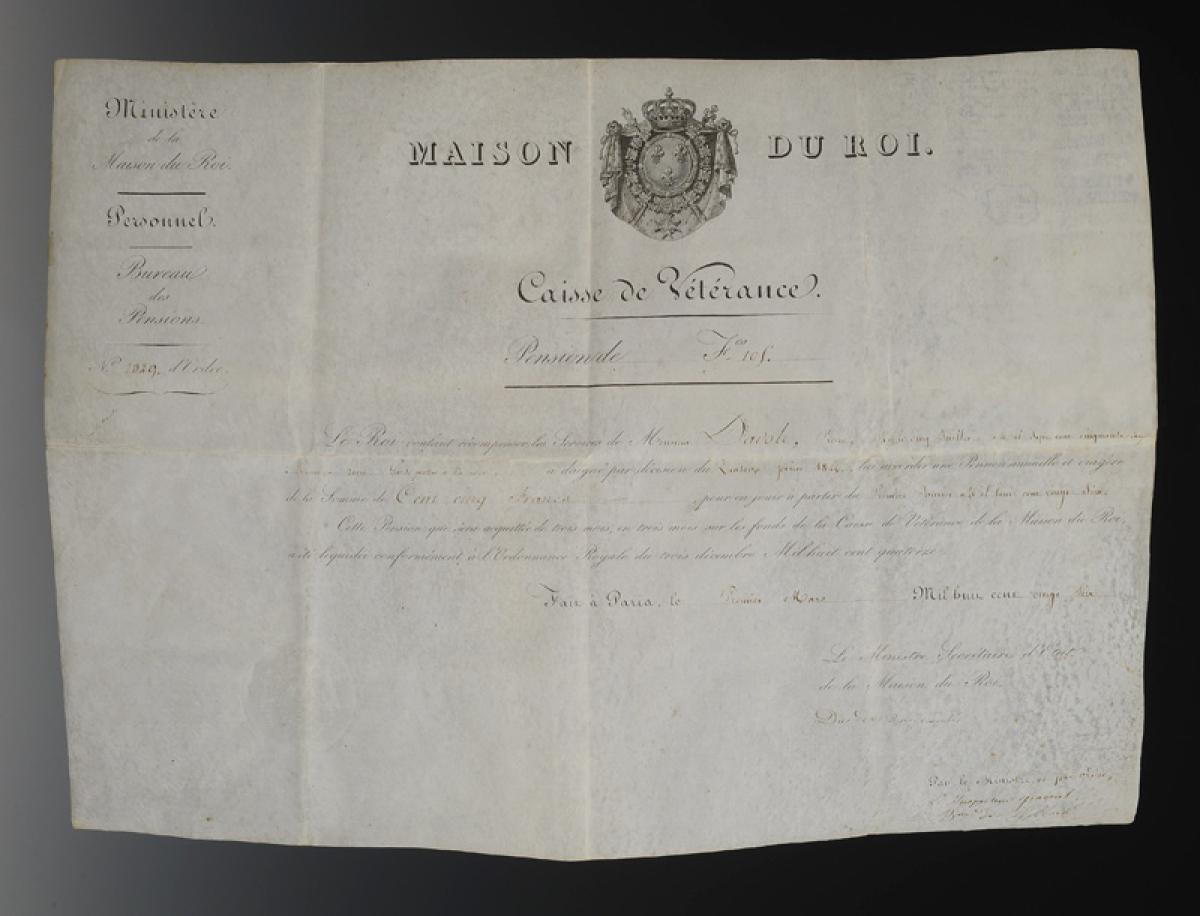 Ministère
de la
Maison du Roi.
Personnel.
Bureau
des
Pensions.
N.º 2029. d'Ordre.
MAISON DU ROI.
Caisse de Vétérance.
Pension de F.cs 105.
Le Roi voulant récompenser les Services de Monsieur
a daigné par décision du lui accorder une Pension annuelle et viagère
de la Somme de Cent cinq Francs pour en jouir à partir du Premier
Cette Pension qui sera acquittée de trois mois, en trois mois sur les fonds de la Caisse de Vétérance de la Maison du Roi,
a été liquidée conformément à l'Ordonnance Royale du trois décembre Mil huit cent quatorze.
Fait à Paris, le Premier Mars Mil huit cent vingt Six
Le Ministre Secrétaire d'Etat
de la Maison du Roi.
Par le Ministre et par ordre,
L'Inspecteur général